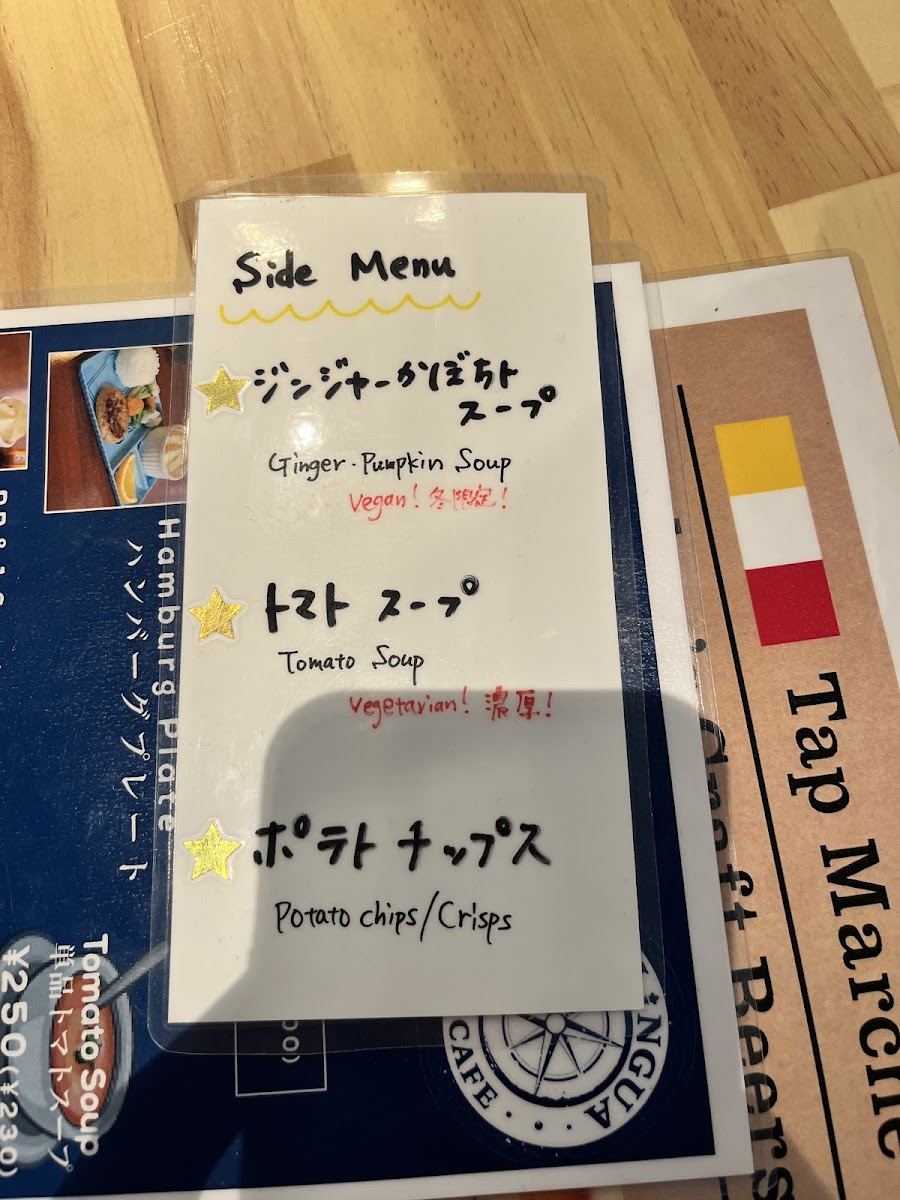 Side Menu
ジンジャーかぼちゃ
スープ
Ginger・Pumpkin Soup
Vegan! 冬限定!
トマト スープ
Tomato Soup
Vegetarian! 濃厚!
ポテト チップス
Potato chips/Crisps
Hamburg Plate
ハンバーグプレート
Tomato Soup
単品トマトスープ
¥250(¥230)
NGUA
CAFE
Tap Marche
Craft Beers